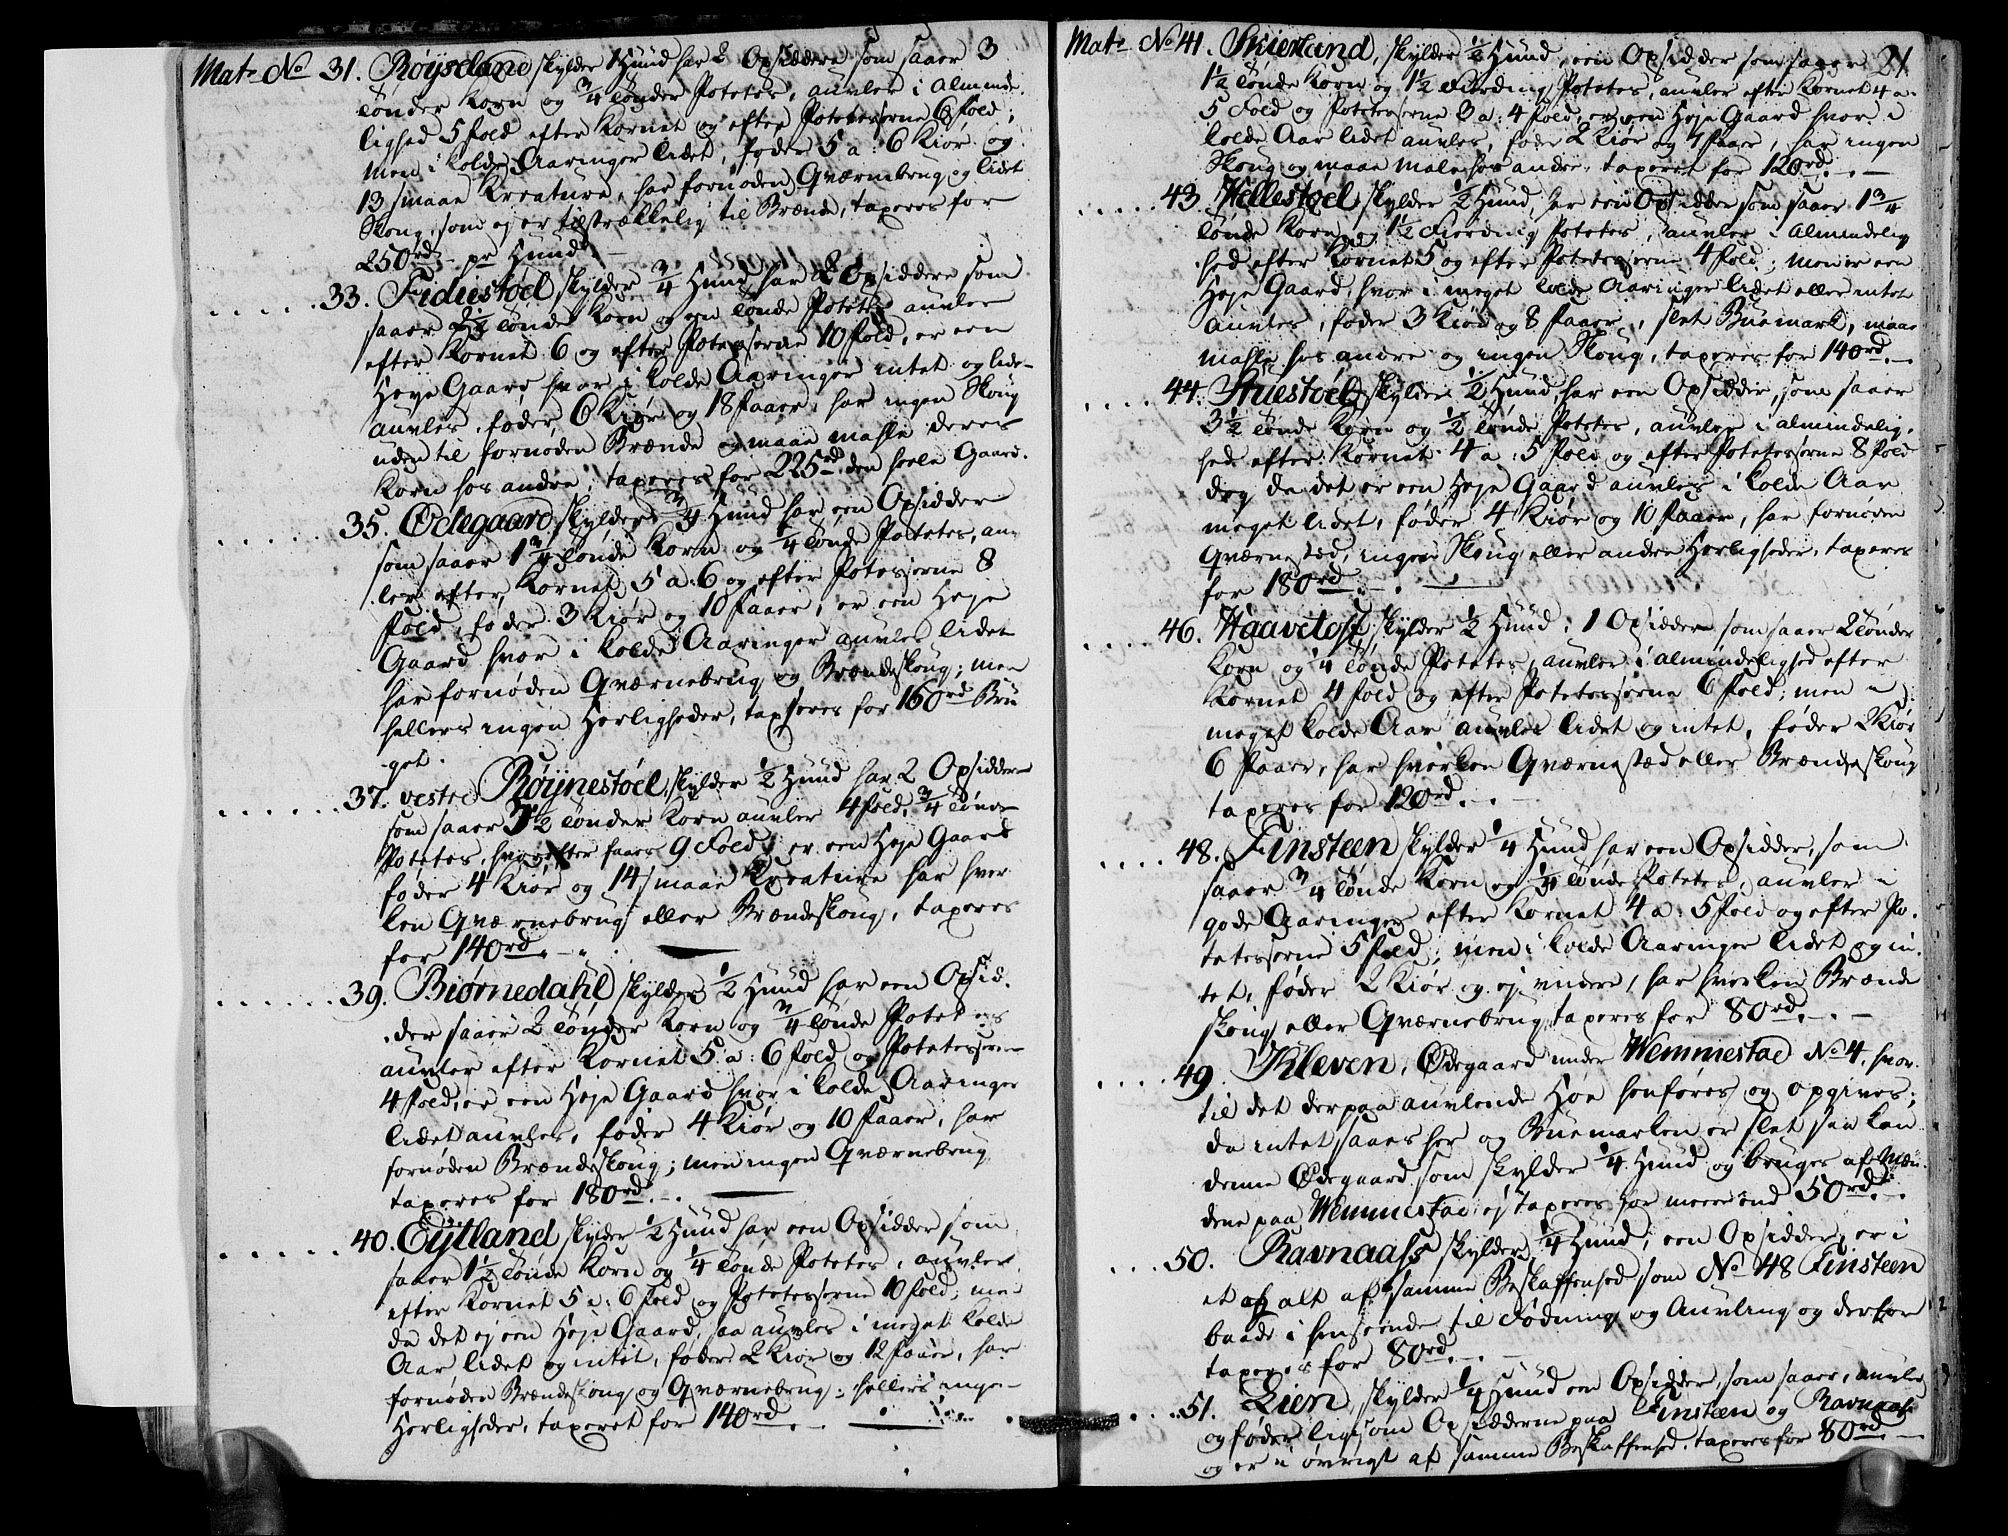 Matr No 31. Røysland skylder 1 Hund har 2 Opsiddere som saaer 3
tønder Korn og 3/4 tønder Potetes, auvler i Alminde
lighed 5 fold efter Kornet og efter Potetesserne 6 fold;
men i kolde Aaringer lidet, føder 5 a 6 Kiør og
13 smaae Kreature, har fornøden Qværnebrug og lidet
Skoug, som ej er tilstrækkelig til Brænde, taxeres for
250rd. pr Hund.
33. Fidiestøel skylder 3/4 Hund, har 2 Opsiddere som
saaer tønder Korn og een tønde Potetes auvler
efter Kornet 6 og efter Potetesserne 10 fold, er een
Høye Gaard hvor i kolde Aaringer intet og lidet
auvles, føder 6 Kiør og 18 faaer, har ingen Skoug
uden til fornøden Brænde og maae mahle deres
Korn hos andre, taxeres for 225rd den heele Gaard.
35. Ødegaard skylder 3/4 Hund har een Opsidder
som saaer 1 3/4 tønde Korn og 1/4 tønde Potetes, auv
ler efter Kornet 5 a 6 og efter Potetesserne 8
fold, føder 3 Kiør og 10 faaer, er een Høje
Gaard hvor i kolde Aaringer auvles lidet
har fornøden Qværnebrug og Brændeskoug; men
hellers ingen Herligheder, taxseres for 160rd Brü
get.
37. vestre Røynestøel, skylder 1/2 Hund har 2 Opsiddere
som saaer 3 1/2 tønder Korn auvler 4 fold, 3/4 tønde
Potetes, hvorefter faaes 9 Fold, er een Høje Gaard
føder 4 Kiør og 14 smaae Kreature har hver
ken Qværnebrug eller Brændeskoug, taxeres
for 140rd.
39. Biørnedahl skylder 1/2 Hund har een Opsid.
der saaer 2 tønder Korn og 3/4 tønde Potetes
auvler efter Kornet 5 a 6 fold og Potetesserne
4 fold, er een Høje Gaard hvor i kolde Aaringer
lidet auvles, føder 4 Kiør og 10 faaer, har
fornøden Brændeskoug; men ingen Qværnebrug
taxeres for 180rd.
40. Eÿtland skylder 1/2 Hund har een Opsidder som
saaer 1 1/2 tønde Korn og 1/4 tønde Potetes, auvler
efter Kornet 5 a 6 fold og Potetesserne 10 fold, men
da det ej een Høje Gaard, saa auvles i meget kolde
Aar lidet og intet, føder 2 Kiør og 12 faaer, har
fornøden Brændeskoug og Qværnebrug; hellers ingen
Herligheder, taxeret for 140rd.
21.
Matr No 41. Skierland, skylder 1/2 Hund, een Opsidder som saaer
1 1/2 tønde Korn og 1 1/2 Fierding Potetes, auvler efter Kornet 4 a
5 Fold og Potetesserne 3 a 4 fold, er een Høje Gaard hvor i
kolde Aar lidet auvles, føder 2 Kiør og 7 faaer, har ingen
Skoug og maae male hos andre, taxeret for 120rd.
43. Hellestøel skylder 1/2 Hund, har een Opsidder som saaer 1 3/4
tønde Korn og 1 1/2 Fierding Potetes, auvler i Almindelig
hed efter Kornet 5 og efter Potetesserne 4 fold; men er een
Høje Gaard, hvor i meget kolde Aaringer lidet eller intet
auvles, føder 3 Kiør og 8 faaer, slet Buemark, maae
mahle hos andre og ingen Skoug, taxeres for 140rd.
44. Stuestøel, skylder 1/2 Hund, har een Opsidder, som saaer
3 1/2 tønde Korn og 1/2 tønde Potetes, auvler i almindelig.
hed efter Kornet 4 a 5 fold og efter Potetesserne 8 fold
dog da det er een Høje Gaard auvles i kolde Aar
meget lidet, føder 4 Kiør og 10 faaer, har fornøden
Qværnestæd, ingen Skoug eller andre Herligheder, taxeres
for 180rd.
46. Haavetoft, skylder 1/2 Hund, 1 Opsidder som saaer 2 tønder
Korn og 1/4 tønde Potetes, auvler i almindelighed efter
Kornet 4 fold og efter Potetesserne 6 fold, men i
meget kolde Aar auvles lidet og intet, føder 2 Kiør
6 faaer, har hverken Qværnestæd eller Brændeskoug
taxeres for 120rd.
48. Finsteen skylder 1/4 Hund har een Opsidder, som
saaer 3/4 tønde Korn og 1/4 tønde Potetes, auvler i
gode Aaringer efter Kornet 4 a 5 fold og efter Po.
tetesserne 5 fold, men i kolde Aaringer lidet og in
tet, føder 2 Kiør og ej videre, har hverken Brænde
skoug eller Qværnebrug, taxeres for 80rd.
49. Kleven, Ødegaard under Wemmestad No 4. hvor.
til det derpaa auvlende Høe henføres og opgives;
da intet saaes her og Buemarken er slet saa kan
denne Ødegaard som skylder 1/4 Hund og bruges af Mæn.
dene paa Wemmestad ej taxeres for meere end 50rd.
50. Ravnaass skylder 1/4 Hund, een Opsidder, er i
et og alt af samme Beskaffenhed som No 48 Finsteen
baade i henseende til Fødning og Auvling og derfor
taxeres for 80rd.
51. Lien, skylder 1/4 Hund een Opsidder, som saaer, auvler
og føder ligesom Opsidderne paa Finsteen og Ravnaas
og er i øvrigt af samme Beskaffenhed, taxeres for 80rd.